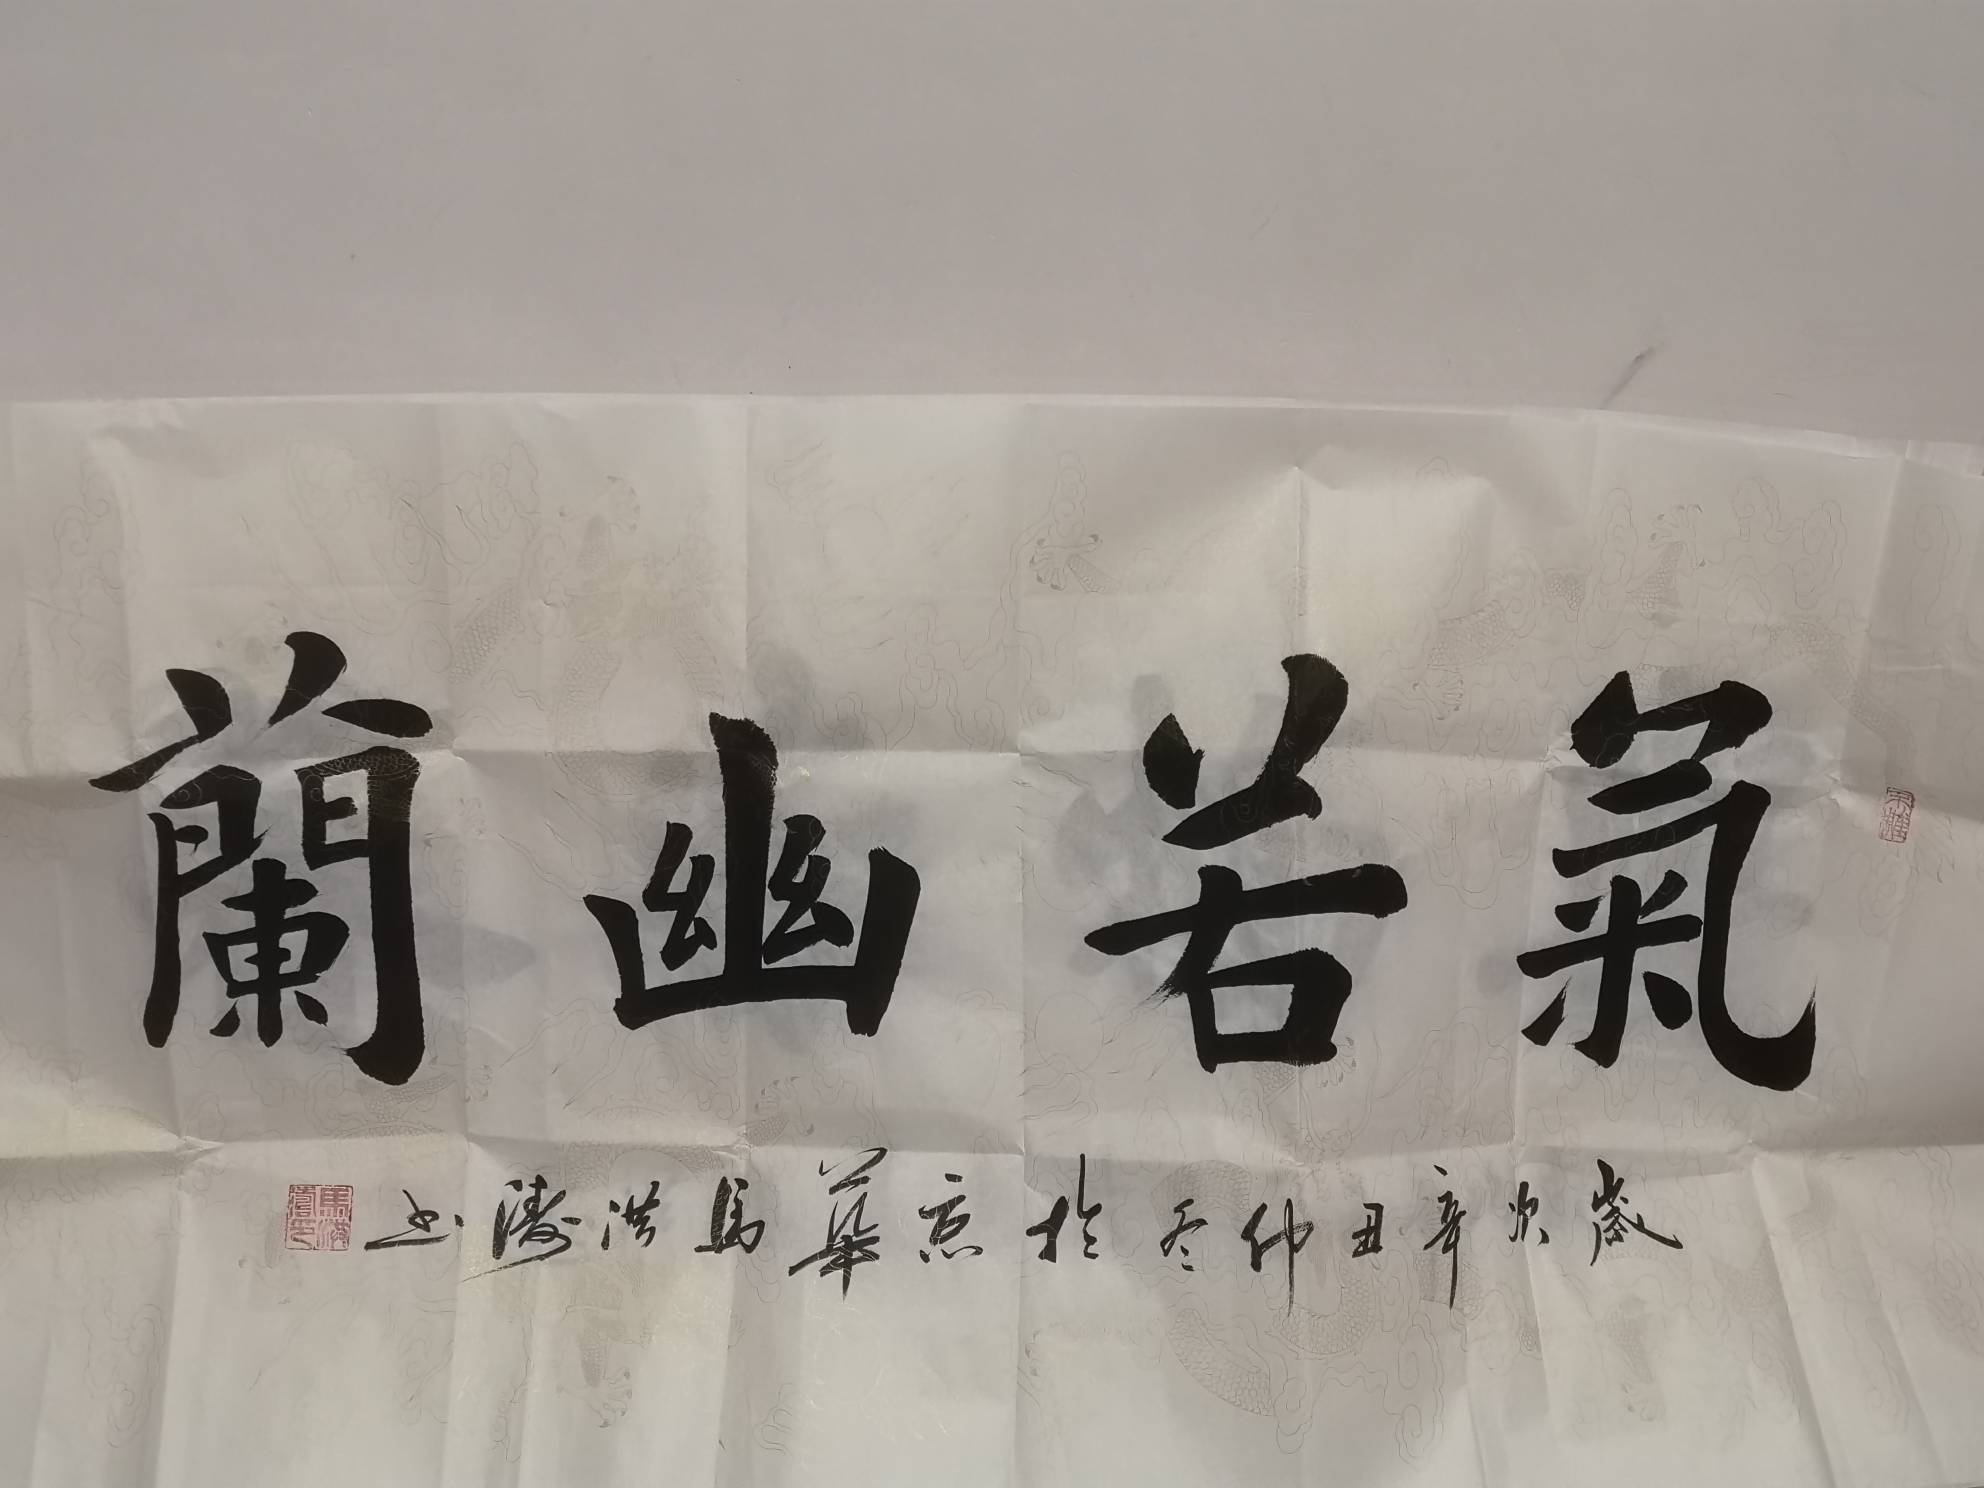 氣若幽蘭
歲次辛丑仲冬於京華馬洪濤書